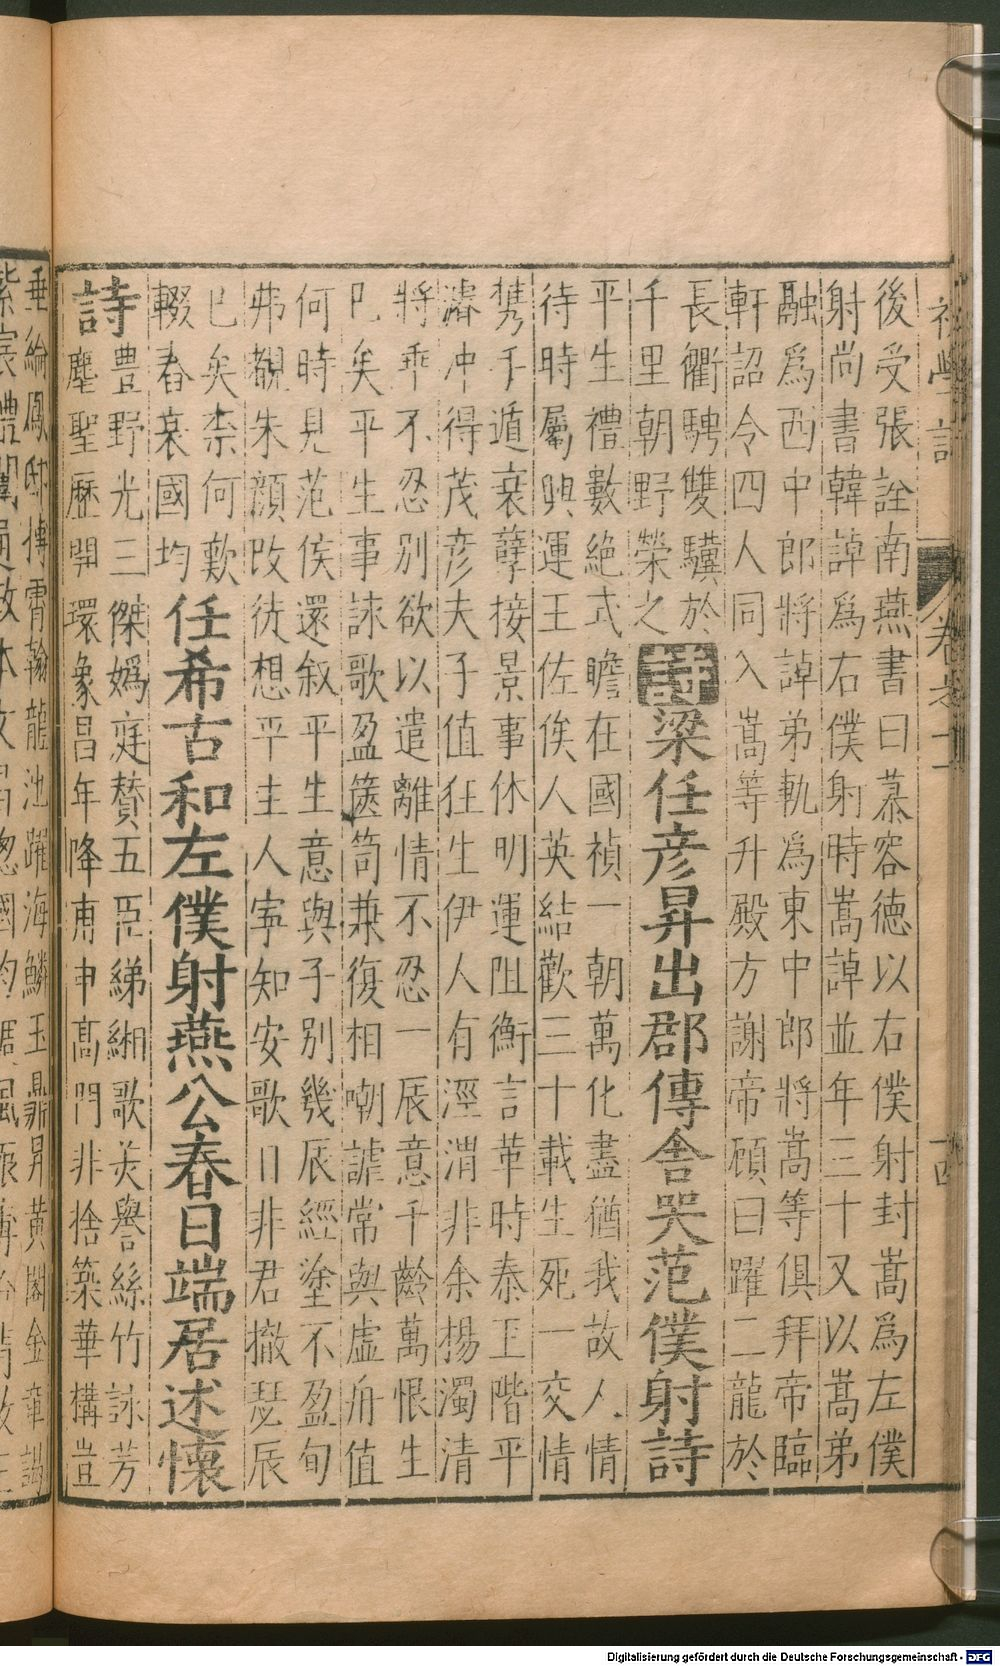 後受張詮南燕書曰慕容徳以右僕射封嵩爲左僕
射尚書韓諄爲右僕射時嵩諄並年三十又以嵩弟
融爲西中郎將諄弟軌爲東中郎將嵩等俱拜帝臨
軒詔令四人同入嵩等升殿方謝帝顧曰躍二龍於
長衢騁雙驥於
千里朝野榮之
詩梁任彦昇出郡傳舎哭范僕射詩
平生禮數絶式瞻在國禎一朝萬化盡猶我故人情
待時屬興運王佐俟人英結歡三十載生死一交情
携手遁衰孽接景事休明運阻衡言革時泰玉階平
濬冲得茂彦夫子值狂生伊人有涇渭非余揚濁清
將乖不忍别欲以遣離情不忍一辰意千齡萬恨生
巳矣平生事詠歌盈篋笥兼復相嘲謔常與虚舟值
何時見范侯還叙平生意與子别幾辰經塗不盈旬
弗覩朱顔改徒想平生人寧知安歌日非君撤瑟辰
已矣柰何歎
輟舂哀國均
任希古和左僕射燕公春日端居述懷
詩
豐野光三傑嬀庭賛五臣綈緗歌美譽絲竹詠芳
塵聖歷開環象昌年降甫申髙門非捨築華構豈
垂綸鳳邸摶霄翰龍池躍海鱗玉鼎昇黄閣金章謁
卷
Digitalisierung gefördert durch die Deutsche Forschungsgemeinschaft - DFG